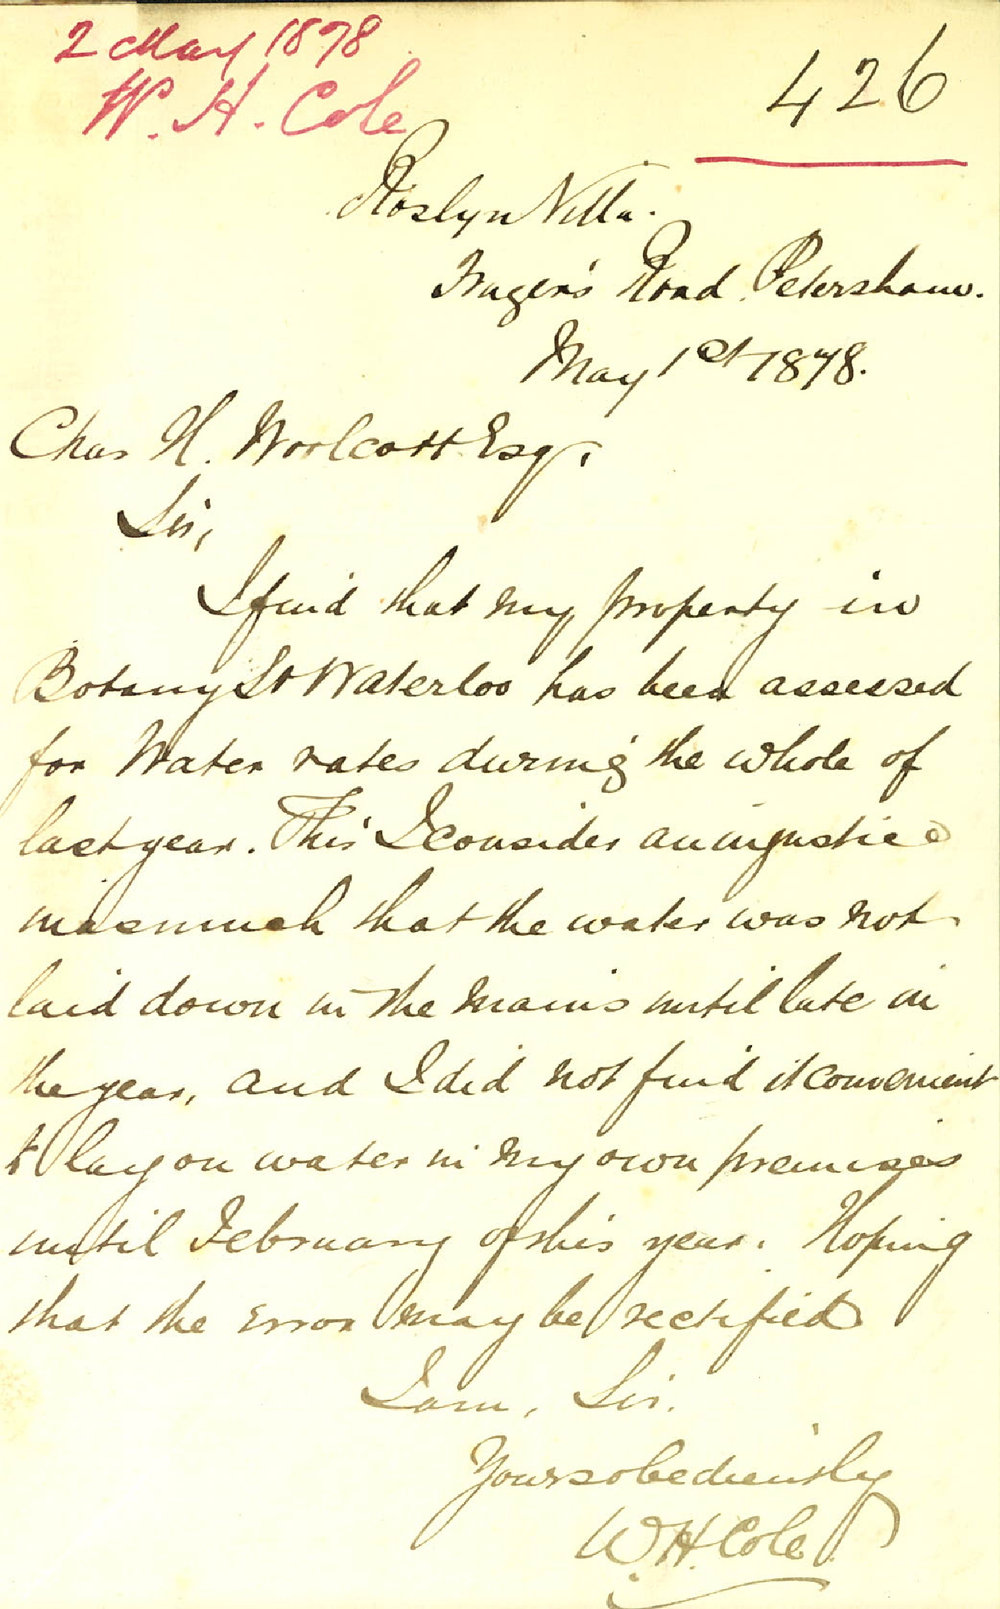 2 May 1878
W. H. Cole
426
Roslyn Villa.
Road Petersham.
May 1st 1878.
Chas H. Woolcott Esq.
Sir,
I find that my property in
Botany St Waterloo has been assessed
for Water rates during the whole of
last year. This I consider an injustice
inasmuch that the water was not
laid down in the Mains until late in
the year, and I did not find it convenient
to lay on water in my own premises
until February of this year. Hoping
that the error may be rectified
I am, Sir.
Yours obediently
W. H. Cole